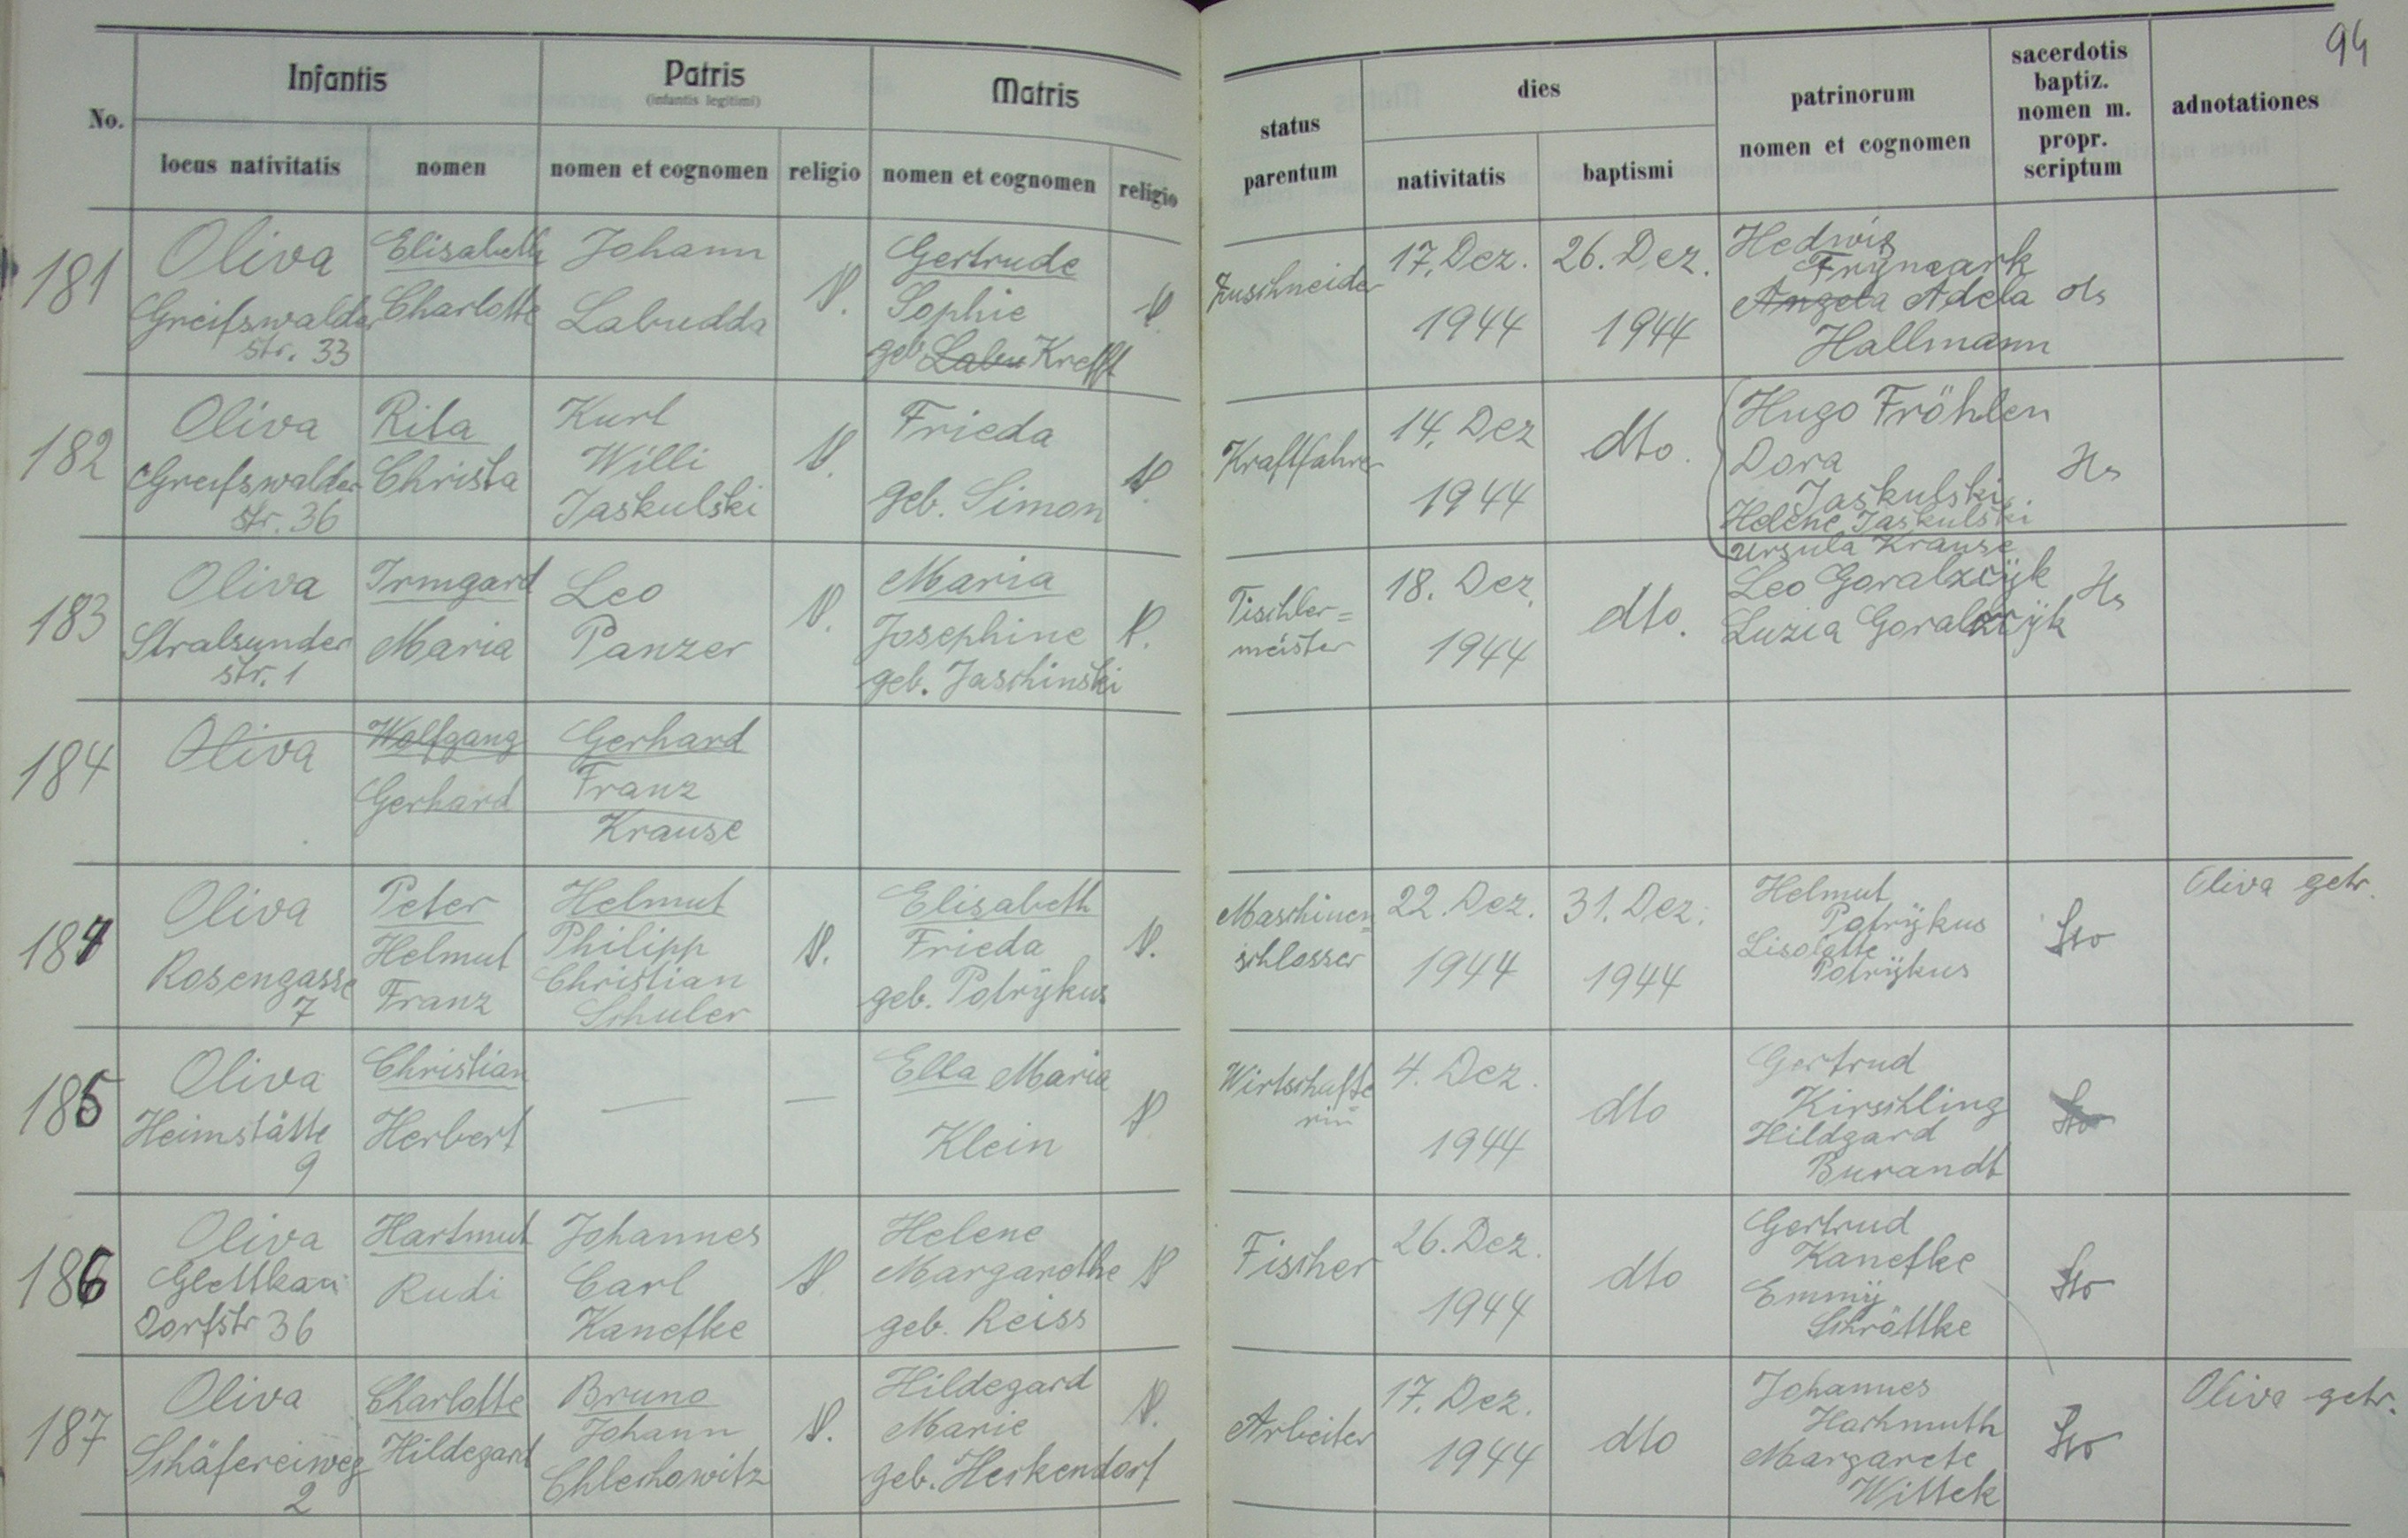 94
No.
Infantis
locus nativitatis
nomen
Patris
(infantis legitimi)
nomen et cognomen
religio
Matris
nomen et cognomen
religio
status
parentum
dies
nativitatis
baptismi
patrinorum
nomen et cognomen
sacerdotis
baptiz.
nomen m.
propr.
scriptum
adnotationes
181
Oliva
Greifswalder
str. 33
Elisabeth
Charlotte
Johann
Labudda
Gertrude
Sophie
geb Labu Krefft
Zuschneider
17. Dez.
1944
26. Dez.
1944
Hedwig
Frymark
Angela Adela
Hallmann
182
Oliva
Greifswalder
str. 36
Rita
Christa
Kurt
Willi
Jaskulski
Frieda
geb. Simon
Kraftfahrer
14. Dez
1944
dto.
Hugo Fröhlen
Dora
Jaskulski
Helene Jaskulski
Ursula Krause
Hs
183
Oliva
Stralsunder
str. 1
Irmgard
Maria
Leo
Panzer
Maria
Josephine
geb. Jaschinski
Tischler=
meister
18. Dez.
1944
dto.
Leo Goralzcÿk
Luzia Goralzcÿk
Hs
184
Oliva
Wolfgang
Gerhard
Gerhard
Franz
Krause
184
Oliva
Rosengasse
7
Peter
Helmut
Franz
Helmut
Philipp
Christian
Schuler
Elisabeth
Frieda
geb. Potrÿkus
Maschinen=
schlosser
22. Dez.
1944
31. Dez.
1944
Helmut
Potrÿkus
Lisolotte
Potrÿkus
Oliva getr.
185
Oliva
Heimstätte
9
Christian
Herbert
—
—
Ella Maria
Klein
Wirtschafte
rin
4. Dez.
1944
dto
Gertrud
Kirschling
Hildgard
Burandt
186
Oliva
Glettkau
Dorfstr 36
Hartmut
Rudi
Johannes
Carl
Kanefke
Helene
Margarethe
geb. Reiss
Fischer
26. Dez.
1944
dto
Gertrud
Kanefke
Emmÿ
Schröttke
187
Oliva
Schäfereiweg
2
Charlotte
Hildegard
Bruno
Johann
Chlechowitz
Hildegard
Marie
geb. Herkendorf
Arbeiter
17. Dez.
1944
dto
Johannes
Hachmuth
Margarete
Wittek
Oliva getr.